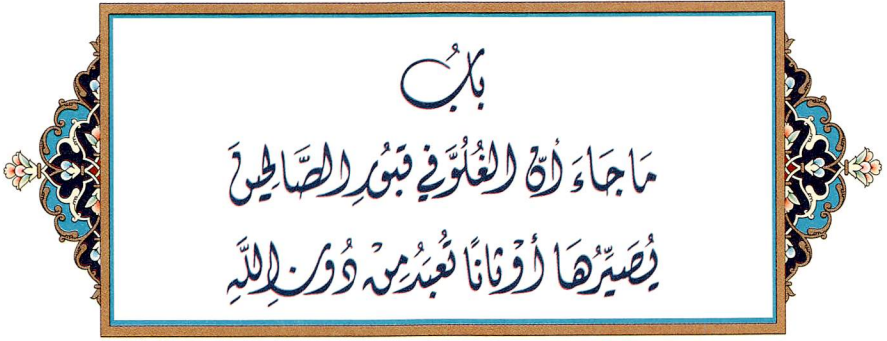 بَابُ
مَا جَاءَ أَنَّ الغُلُوَّ فِي قُبُورِ الصَّالِحِينَ
يُصَيِّرُهَا أَوْثَانًا تُعْبَدُ مِنْ دُونِ اللَّهِ